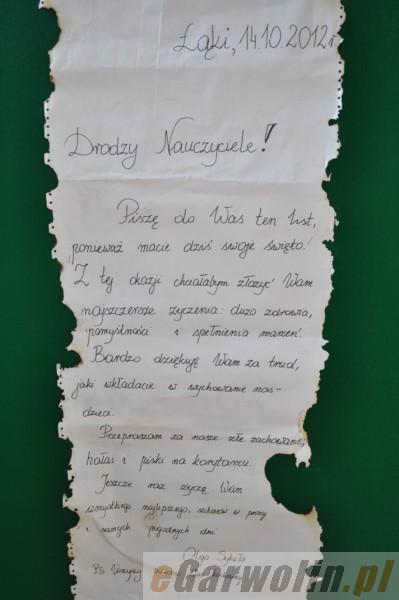 Łąki, 14.10.2012r
Drodzy Nauczyciele!
Piszę do Was ten list,
ponieważ macie dziś swoje święto!
Z tej okazji chciałabym złożyć Wam
najszczersze życzenia: dużo zdrowia,
pomyślności i spełnienia marzeń!
Bardzo dziękuję Wam za trud,
jaki wkładacie w wychowanie nas-
dzieci.
Przepraszam za nasze złe zachowanie,
hałas i piski na korytarzu.
Jeszcze raz życzę Wam
wszystkiego najlepszego, sukcesów w pracy
i samych pogodnych dni
Olga
PS. Wszyscy
eGarwolin.pl